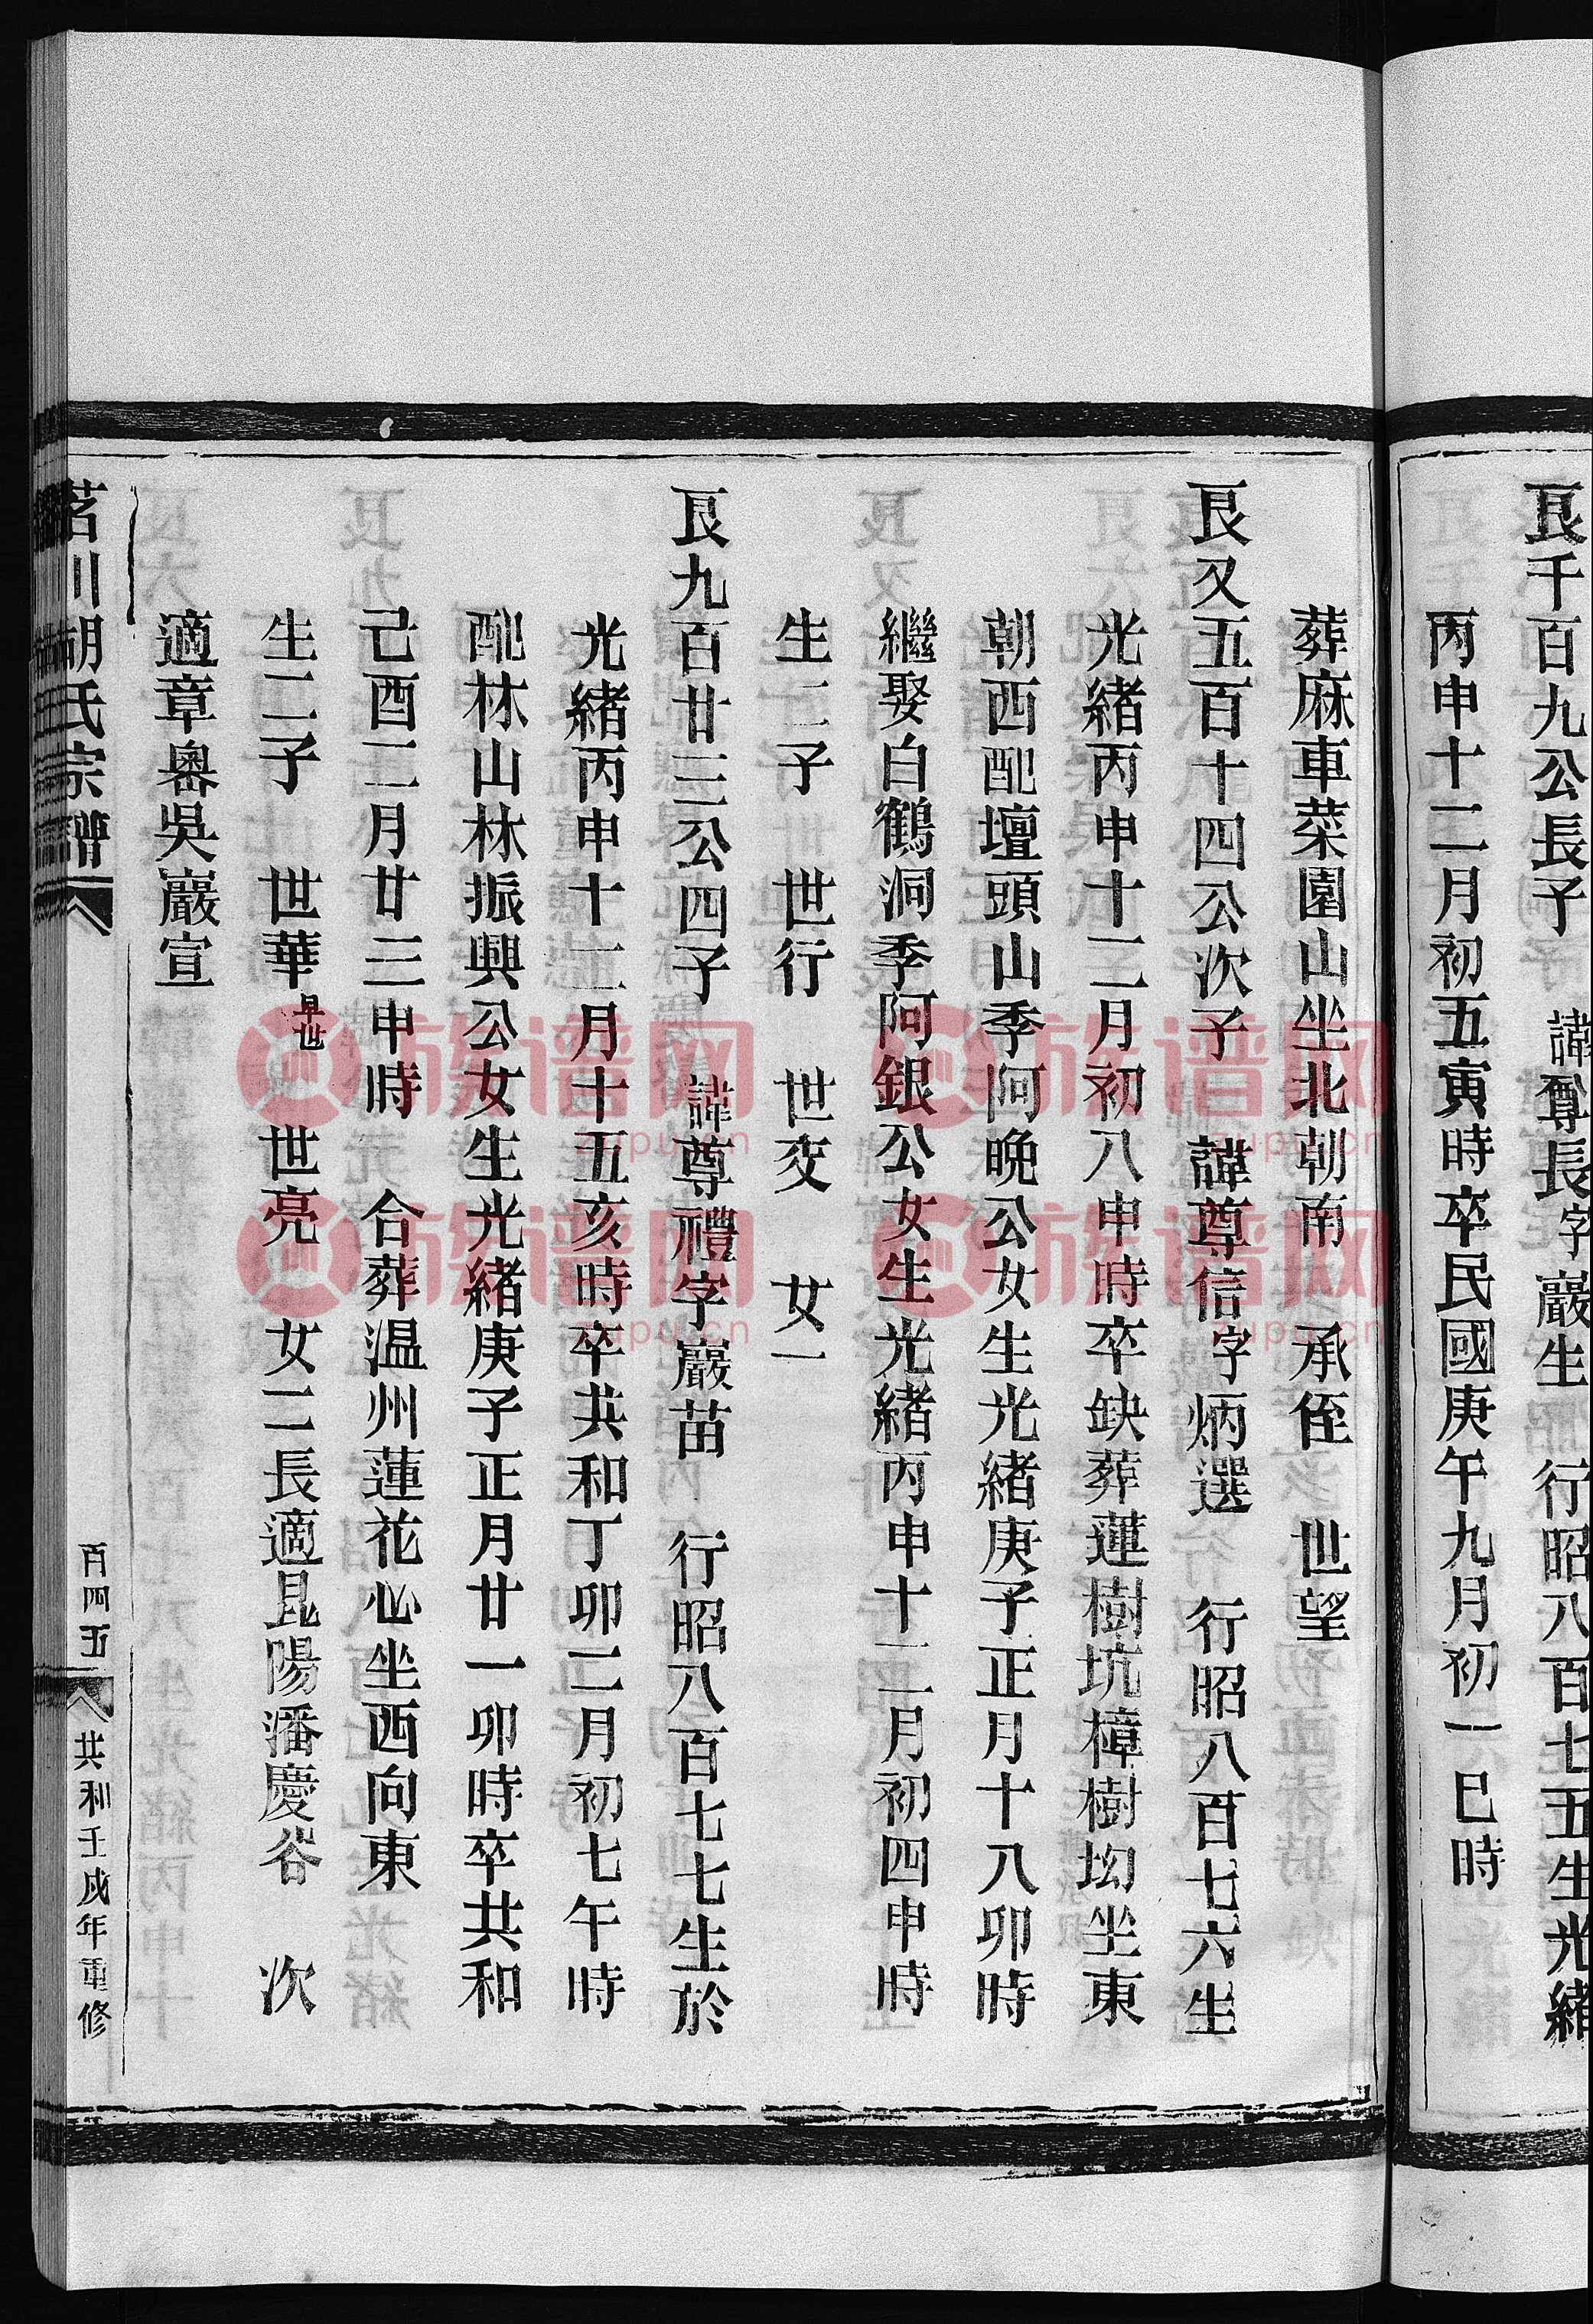 良千百九公長子 諱尊長字巖生 行昭八百七五生光緒
丙申十二月初五寅時卒民國庚午九月初一巳時
葬麻車菜園山坐北朝南 承侄 世望
良又五百十四公次子 諱尊信字炳選 行昭八百七六生
光緒丙申十二月初八申時卒缺葬蓮樹坑樟樹坳坐東
朝西配壇頭山季阿晚公女生光緒庚子正月十八卯時
繼娶白鶴洞季阿銀公女生光緒丙申十二月初四申時
生二子 世行 世交 女一
良九百廿三公四子 諱尊禮字巖苗 行昭八百七七生於
光緒丙申十二月十五亥時卒共和丁卯二月初七午時
配林山林振興公女生光緒庚子正月廿一卯時卒共和
己酉二月廿三申時 合葬温州蓮花心坐西向東
生二子 世華早世 世亮 女二長適昆陽潘慶谷 次
適章嶴吳巖宣
茗川胡氏宗譜
百四五
共和壬戌年重修
族谱网
zupu.cn
族谱网
zupu.cn
族谱网
zupu.cn
族谱网
zupu.cn